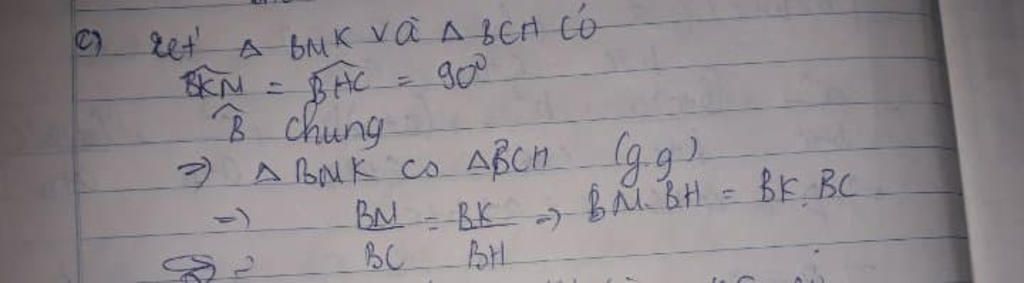 c) xét Δ BMK và Δ BCH có
BKM = BHC = 90⁰
B̂ chung
=> Δ BMK ∽ ΔBCH (g.g)
=> BM/BC = BK/BH => BM.BH = BK.BC